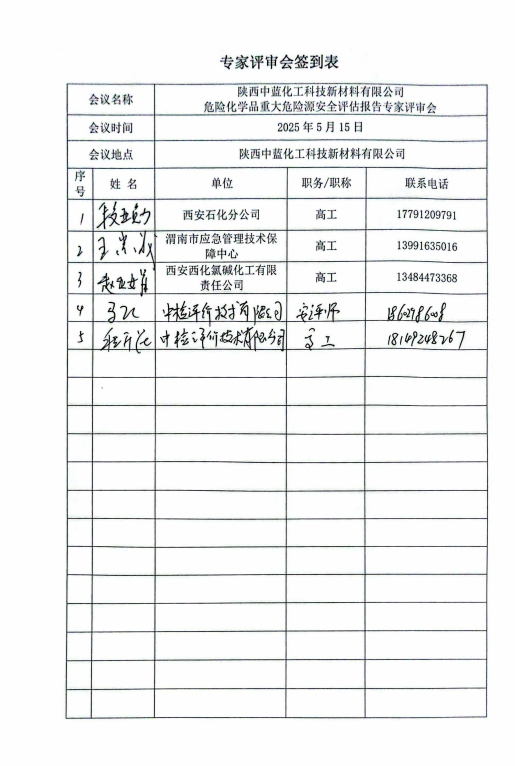 专家评审会签到表
会议名称
陕西中蓝化工科技新材料有限公司
危险化学品重大危险源安全评估报告专家评审会
会议时间
2025 年 5 月 15 日
会议地点
陕西中蓝化工科技新材料有限公司
序号 姓 名 单位 职务/职称 联系电话
1 西安石化分公司 高工 17791209791
2 王 渭南市应急管理技术保
障中心 高工 13991635016
3 赵 西安西化氯碱化工有限
责任公司 高工 13484473368
4 中检评价技术有限公司 安评师
5 程 中检评价技术有限公司 高工 18149248267